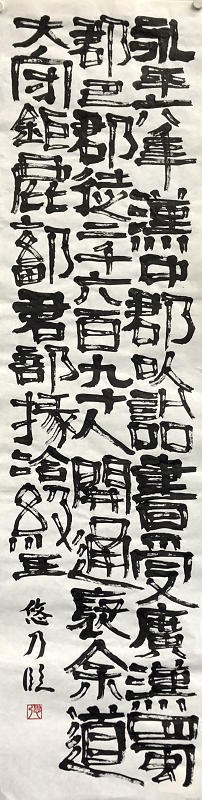 永平六年漢中郡以詔書受廣漢蜀
郡巴郡徒二千六百九十人開通褒余道
大守鉅鹿鄐君部掾治級王
悠乃臨